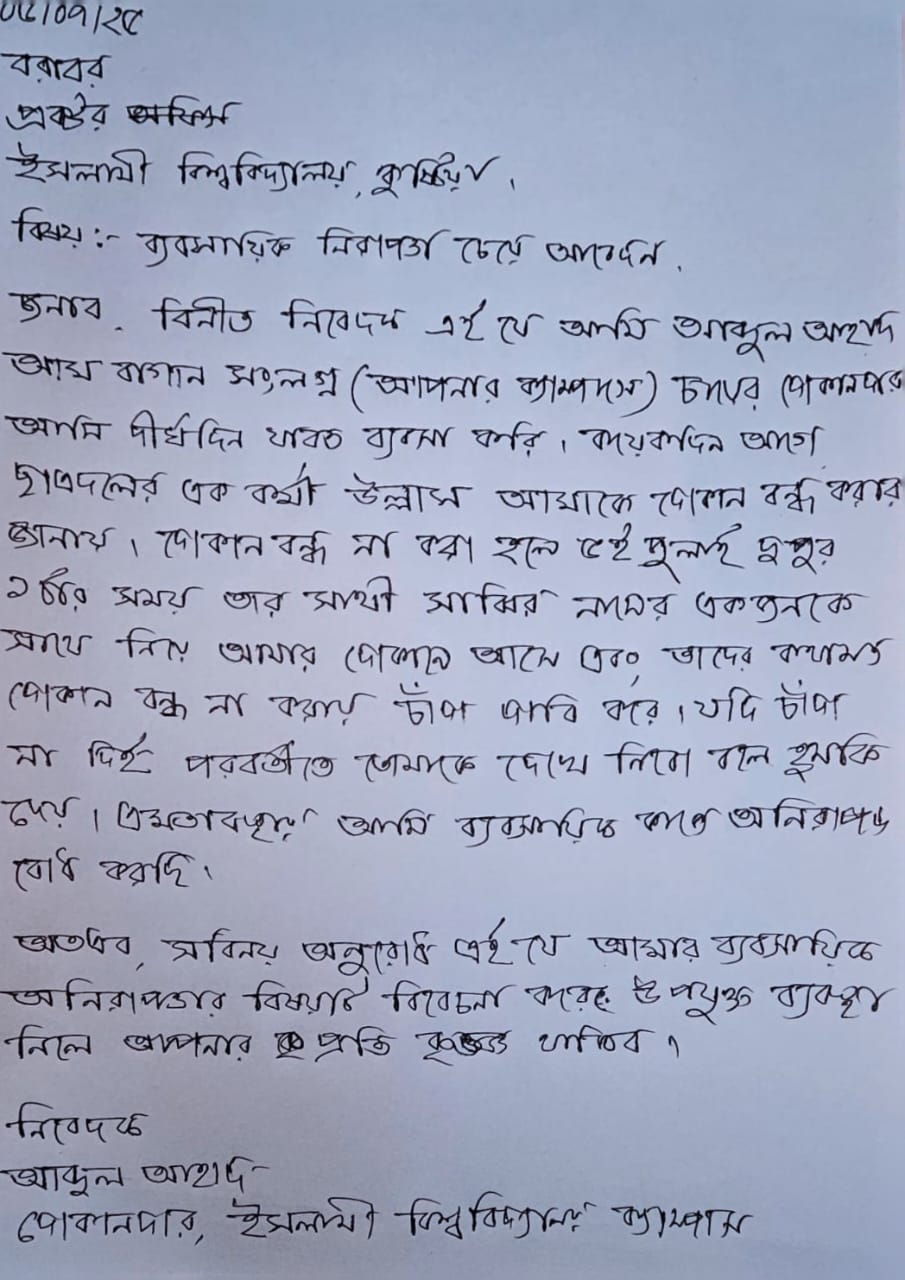 ০৫/০৭/২৫
বরাবর
প্রক্টর অফিস
ইসলামী বিশ্ববিদ্যালয়, কুষ্টিয়া।
বিষয়:- ব্যবসায়িক নিরাপত্তা চেয়ে আবেদন।
জনাব, বিনীত নিবেদক এই যে আমি আব্দুল আহাদ
আম বাগান সংলগ্ন (আপনার ক্যাম্পাসে) চায়ের দোকানদার
আমি দীর্ঘদিন যাবত ব্যবসা করি। কয়েকদিন আগে
ছাত্রদলের এক কর্মী উল্লাস আমাকে দোকান বন্ধ করার
জানায়। দোকান বন্ধ না করা হলে ৫ই জুলাই দুপুর
২টার সময় তার সাথী সাব্বির নামের একজনকে
সাথে নিয়ে আমার দোকানে আসে এবং, তাদের কথামত
দোকান বন্ধ না করায় চাঁদা দাবি করে। যদি চাঁদা
না দিই পরবর্তীতে তোমাকে দেখে নিবো বলে হুমকি
দেয়। এমতাবস্থায় আমি ব্যবসায়িক কাজে অনিরাপদ
বোধ করছি।
অতএব, সবিনয় অনুরোধ এই যে আমার ব্যবসায়িক
অনিরাপত্তার বিষয়টি বিবেচনা করে উপযুক্ত ব্যবস্থা
নিলে আপনার প্রতি কৃতজ্ঞ থাকিব।
নিবেদক
আব্দুল আহাদ
দোকানদার, ইসলামী বিশ্ববিদ্যালয় ক্যাম্পাস